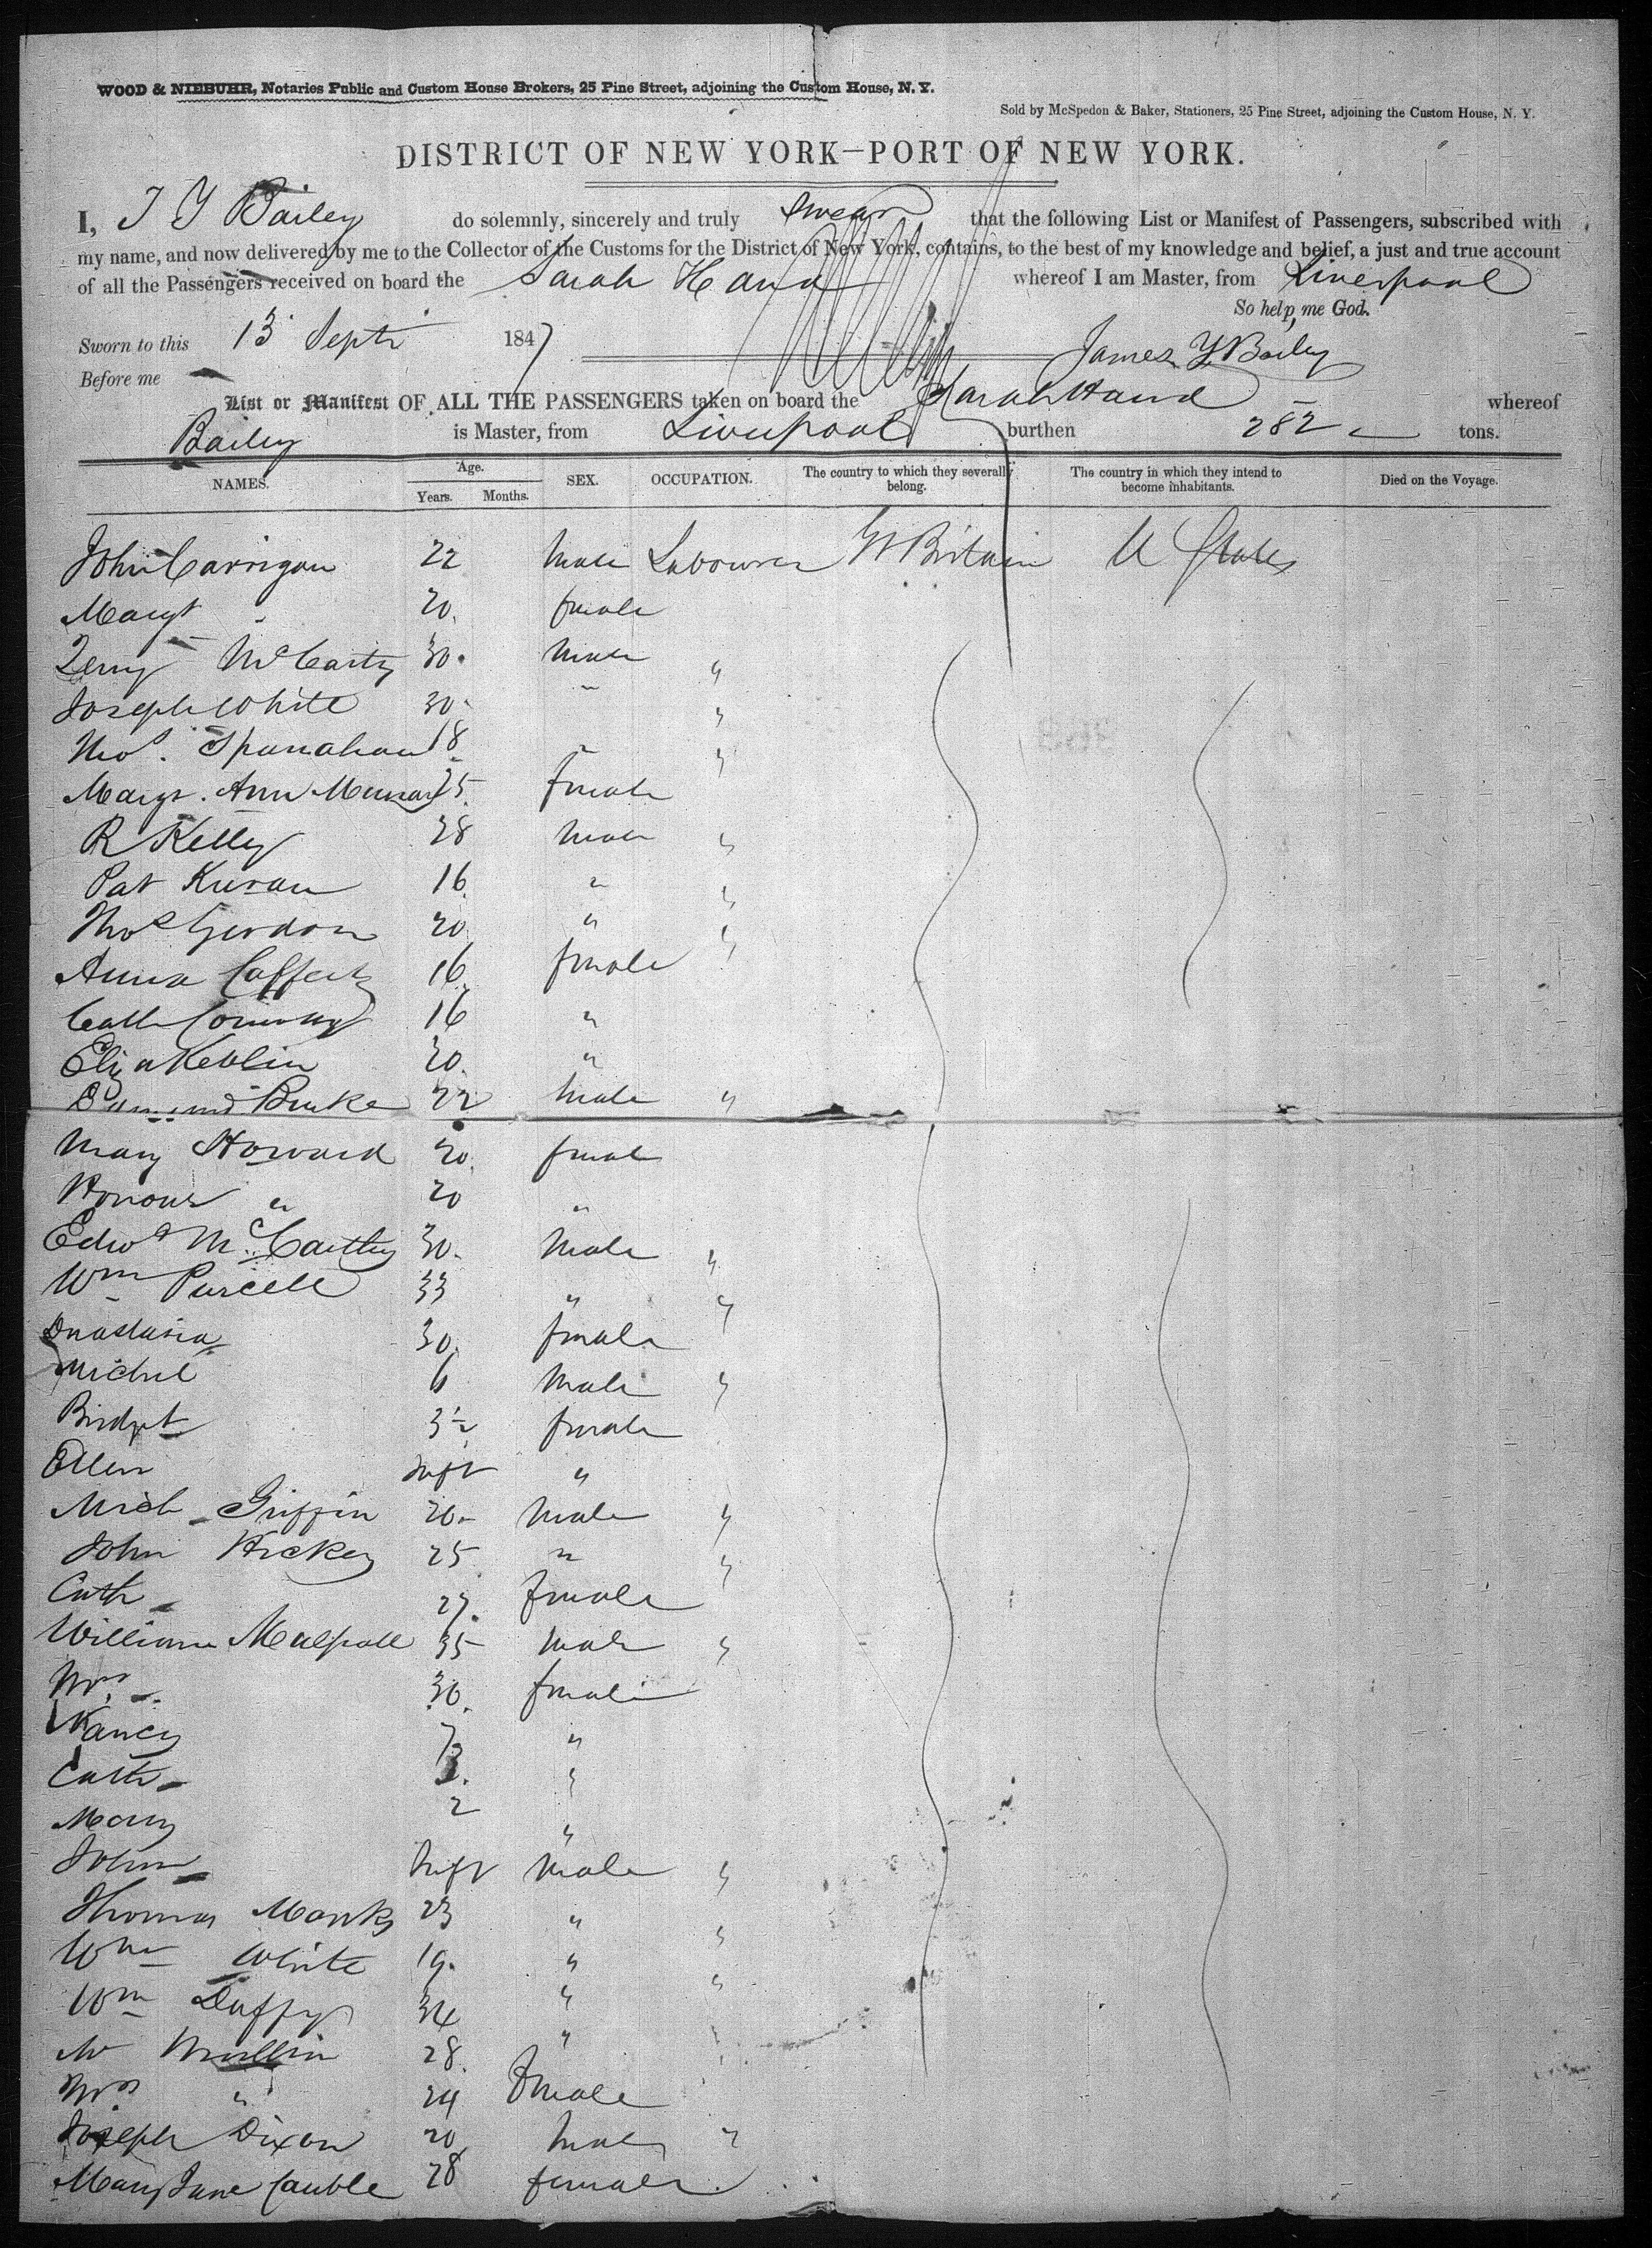 WOOD & NIEBUHR, Notaries Public and Custom House Brokers, 25 Pine Street, adjoining the Custom House, N. Y.
Sold by McSpedon & Baker, Stationers, 25 Pine Street, adjoining the Custom House, N. Y.
DISTRICT OF NEW YORK—PORT OF NEW YORK.
I, J Y Bailey do solemnly, sincerely and truly swear that the following List or Manifest of Passengers, subscribed with
my name, and now delivered by me to the Collector of the Customs for the District of New York, contains, to the best of my knowledge and belief, a just and true account
of all the Passengers received on board the Sarah Hand whereof I am Master, from Liverpool
So help me God.
Sworn to this 13 Sept 1847 James Y Bailey
Before me
List or Manifest OF ALL THE PASSENGERS taken on board the Sarah Hand whereof
Bailey is Master, from Liverpool burthen 282 tons.
NAMES. Age. Years. Months. SEX. OCCUPATION. The country to which they severally belong. The country in which they intend to become inhabitants. Died on the Voyage.
John Carrigan 22 male Labourer Gt Britain U States
Margt " 20. female
McCarty 30. male "
Joseph White 30. " "
Thos. 18 " "
Margt. Ann 25. female
R Kelly 28 male "
Pat 16. " "
Thos Gordon 20. " "
Anna Cafferty 16. female
Cath Conway 16 "
Eliza 20. "
Edmund Burke 22 male "
Mary Howard 20. female
Honour " 20 "
Edwd McCarthy 30. male "
Wm Purcell 33 " "
Anastasia " 30. female
Michel 6 male "
Bridget 3½ female
Ellen Inft "
Mich Griffin 26 male "
John Hickey 25 " "
Cath 27. female
William 35 male "
Mrs " 30. female
Nancy 7 "
Cath 3. "
Mary 2 "
John Inft male "
Thomas Monks 23 " "
Wm White 19. " "
Wm Duffy 34 " "
Mr Mullin 28. " "
Mrs " 24 female
Joseph Dixon 20 male "
Mary Jane Cauble 28 female